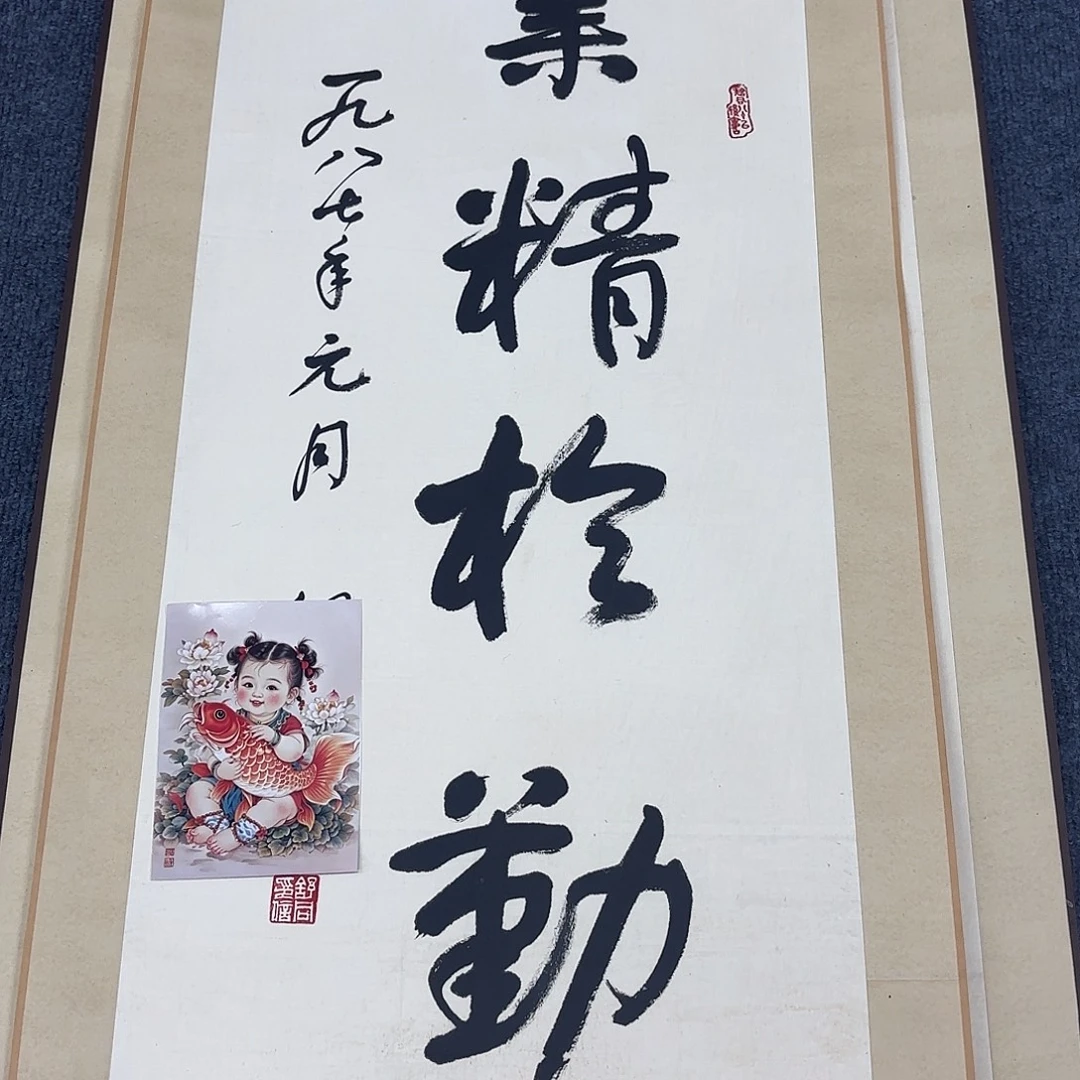 業精於勤
一九八七年元月
舒同